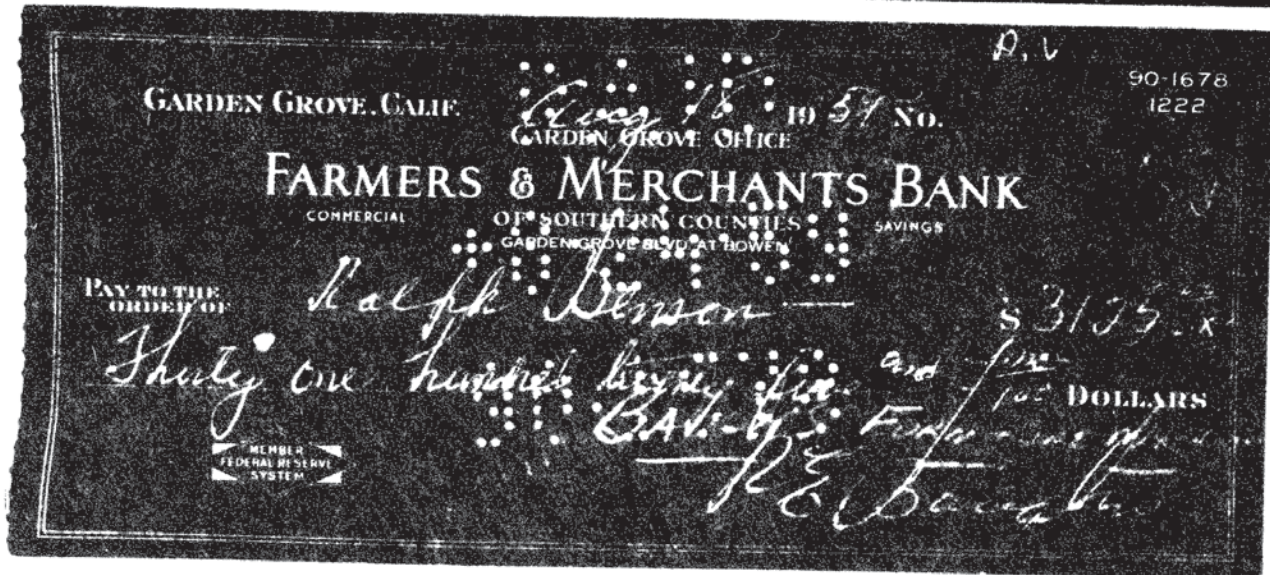 90-1678
1222
GARDEN GROVE, CALIF. Aug 18 19 59 No.
GARDEN GROVE OFFICE
FARMERS & MERCHANTS BANK
COMMERCIAL OF SOUTHERN COUNTIES SAVINGS
GARDEN GROVE BLVD. AT BOWEN
PAY TO THE
ORDER OF Ralph Benson $ 3125
Thirty one hundred twenty five and no/100 DOLLARS
MEMBER
FEDERAL RESERVE
SYSTEM
R E